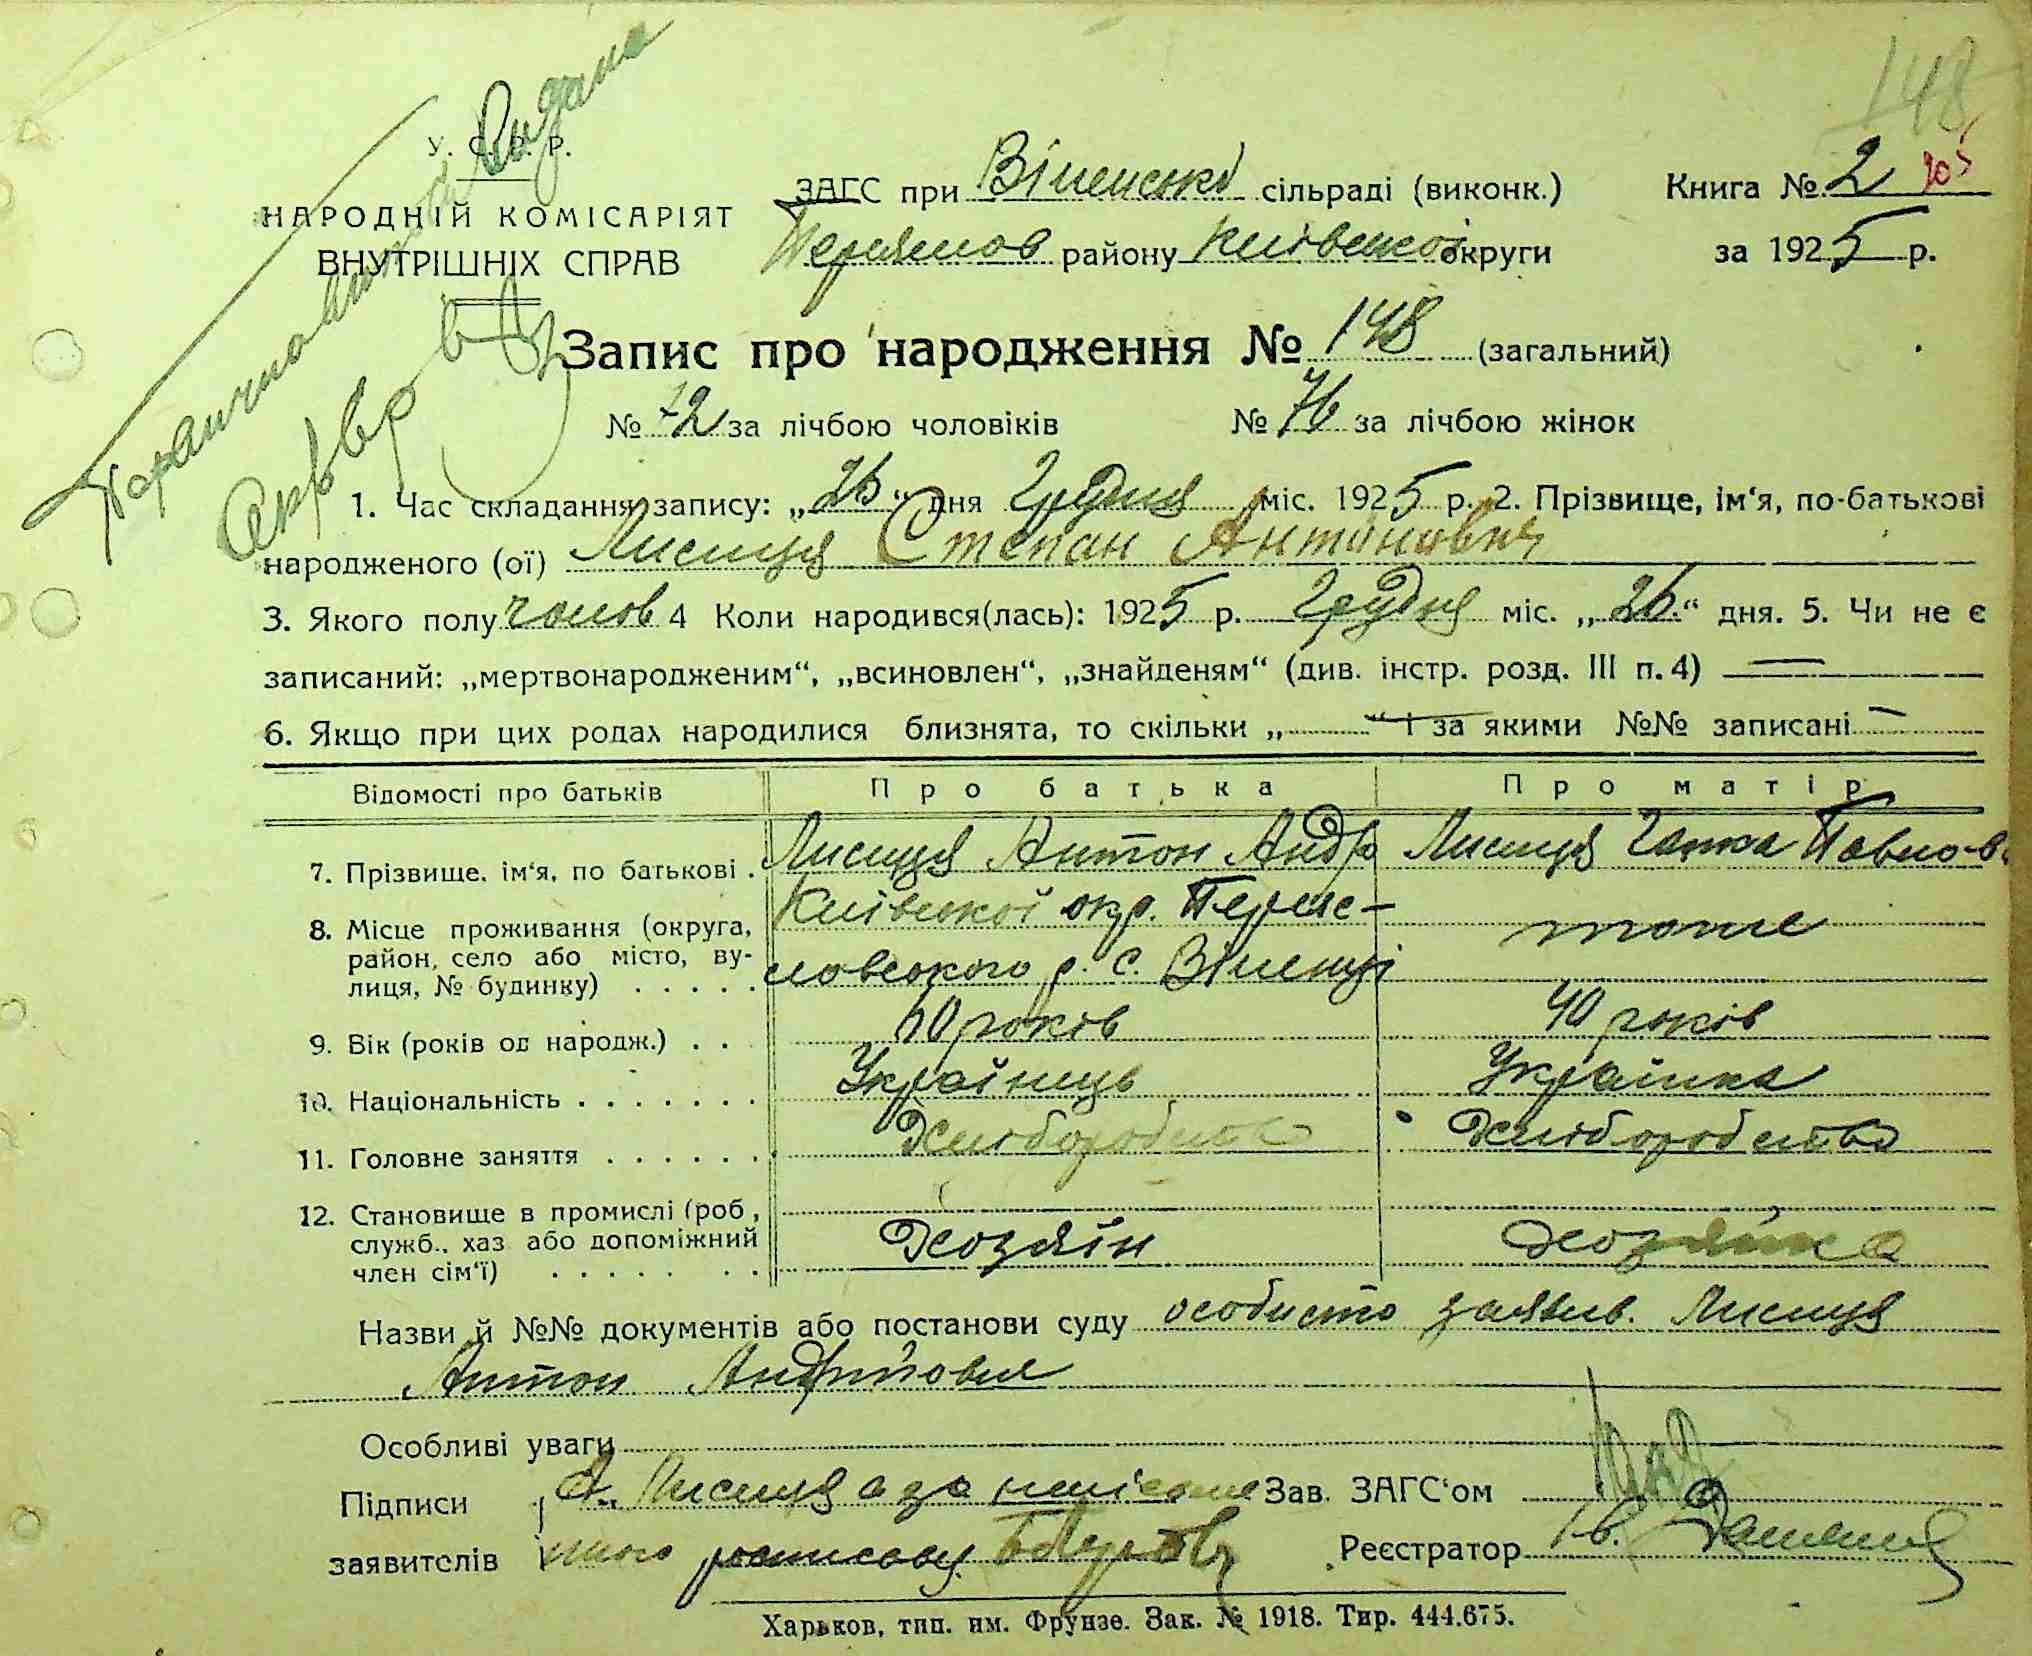 148
Видано
У. С. Р. Р.
НАРОДНІЙ КОМІСАРІЯТ
ВНУТРІШНІХ СПРАВ
ЗАГС при Віненські сільраді (виконк.)
Книга № 2 205
Переясло району Київської округи
за 1925 р.
Запис про народження № 148 (загальний)
№ 72 за лічбою чоловіків № 76 за лічбою жінок
1. Час складання запису: „26“ дня Грудня міс. 1925 р. 2. Прізвище, ім‘я, по-батькові
народженого (ої) Лисиця Степан Антонович
3. Якого полу чолов 4 Коли народився(лась): 1925 р. Грудня міс. „26“ дня. 5. Чи не є
записаний: „мертвонародженим“, „всиновлен“, „знайденям“ (див. інстр. розд. III п. 4) —
6. Якщо при цих родах народилися близнята, то скільки „—“ і за якими №№ записані —
Відомості про батьків Про батька Про матір
7. Прізвище, ім‘я, по батькові . Лисиця Антон Андр Лисиця Ганка Павлов
8. Місце проживання (округа, район, село або місто, вулиця, № будинку) . . . . . Київської окр. Переяс-
ловського р. с. Віненці
тоже
9. Вік (років од народж.) . . 60 років 40 років
10. Національність . . . . . . . Українець Українка
11. Головне заняття . . . . . . Хліборобство Хліборобство
12. Становище в промислі (роб., служб., хаз. або допоміжний член сім‘ї) . . . . . . . Хозяїн хозяйка
Назви й №№ документів або постанови суду особисто заявив. Лисиця
Антон Андрійович
Особливі уваги
Підписи А. Лисиця а за Зав. ЗАГС‘ом
заявителів росписався Реєстратор Ів.
Харьков, тип. им. Фрунзе. Зак. № 1918. Тир. 444.675.